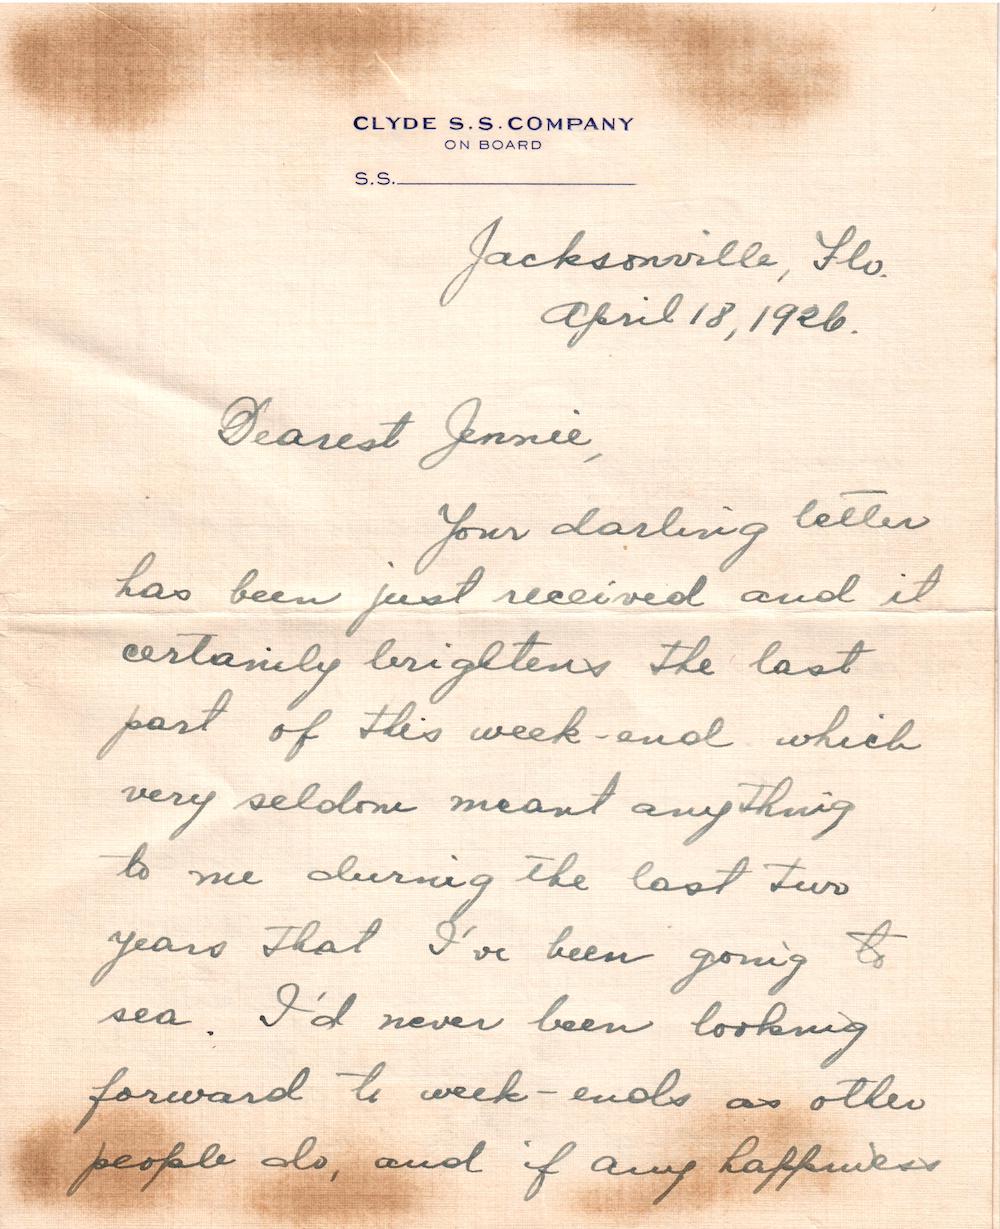 CLYDE S.S. COMPANY
ON BOARD
S.S.
Jacksonville, Flo.
April 18, 1926.
Dearest Jennie,
Your darling letter
has been just received and it
certainly brightens the last
part of this week-end which
very seldom meant anything
to me during the last two
years that I've been going to
sea. I'd never been looking
forward to week-ends as other
people do, and if any happiness